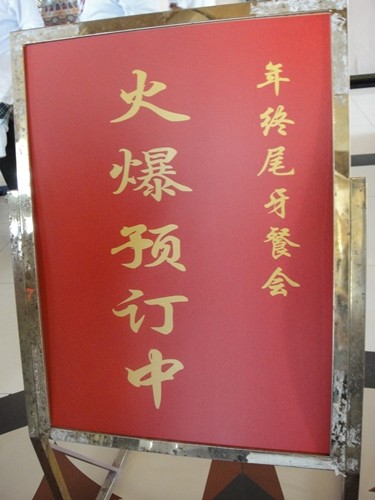 年终尾牙餐会
火爆预订中